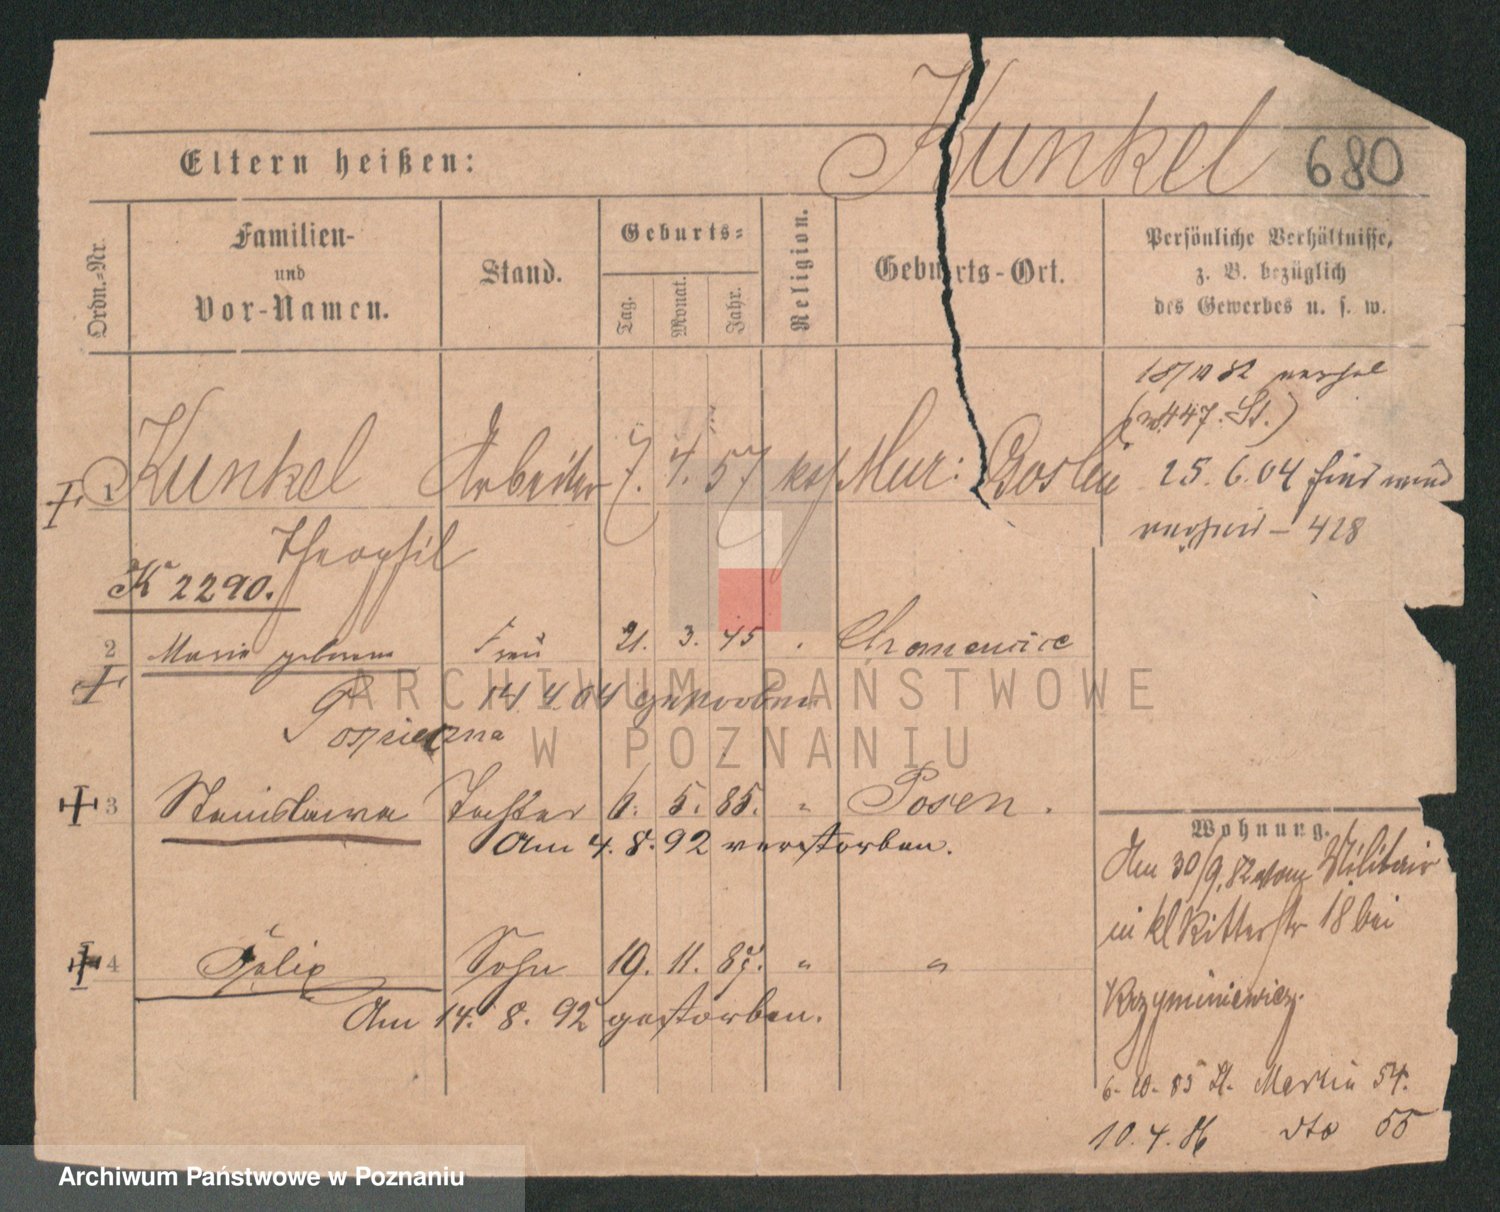 Kunkel 680
Eltern heißen:
Ordn.-Nr.
Familien-
und
Vor-Namen.
Stand.
Geburts-
Tag.
Monat.
Jahr.
Religion.
Geburts-Ort.
Persönliche Verhältnisse,
z. B. bezüglich
des Gewerbes u. s. w.
18/10 82
447. St.)
1 Kunkel Arbeiter 7. 4. 57 kath Mur: Goslin
25. 6. 04
428
Theophil
K 2290.
2 Marie geborene Frau 21. 3. 45 Chomencice
14. 4. 04 gestorben
Pospieszna
3 Stanislawa Tochter 6. 5. 85. " Posen.
Am 4. 8. 92 verstorben.
Wohnung.
Am 30/9. 82 vom Militair
in kl Ritterstr 18 bei
4 Felix Sohn 19. 11. 87. " "
Krzyminiewicz.
Am 14. 8. 92 gestorben.
6. 10. 85 St. Martin 54.
10. 4. 86 dto 55
ARCHIWUM PAŃSTWOWE
W POZNANIU
Archiwum Państwowe w Poznaniu